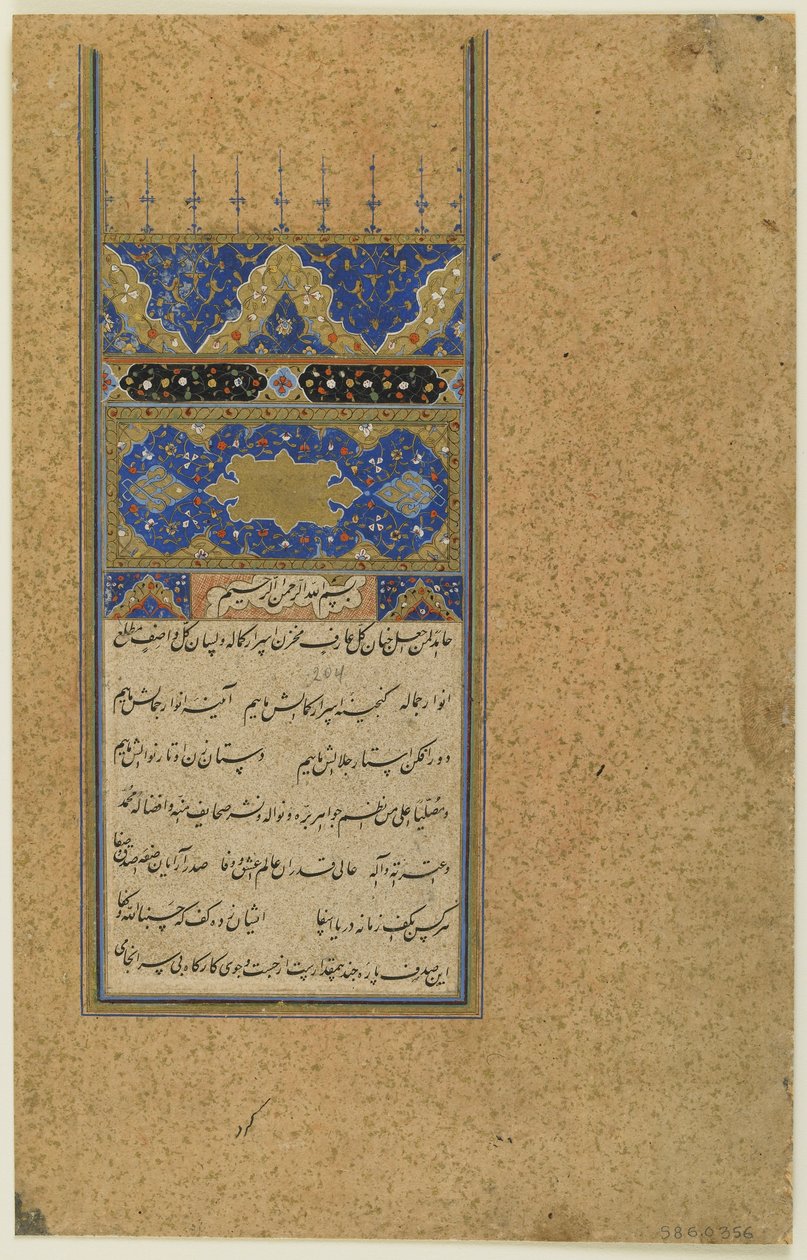 بسم الله الرحمن الرحیم
حامدا لمن جعل جنان کل عارف مخزن اسرار کماله و لسان کل واصف مطلع
204
انوار جماله گنجینه اسرار کمالش ماییم آئینه انوار جمالش ماییم
دور افکن استار جلالش ماییم دستان زن اوتار نوالش ماییم
و مصلیا علی من نظم جواهر بره و نواله و نشر صحایف مننه و افضاله محمد
و عترته و آله عالی قدران عالم عشق و وفا صدر آرایان صفه صدق و صفا
هر کس بکف زمانه در ایشان زده کف که حسبنا الله و کفا
این صدف پاره چند بیمقدار یست از جست و جوی کارکاه بی سرانجامی
کرد
S86.0356